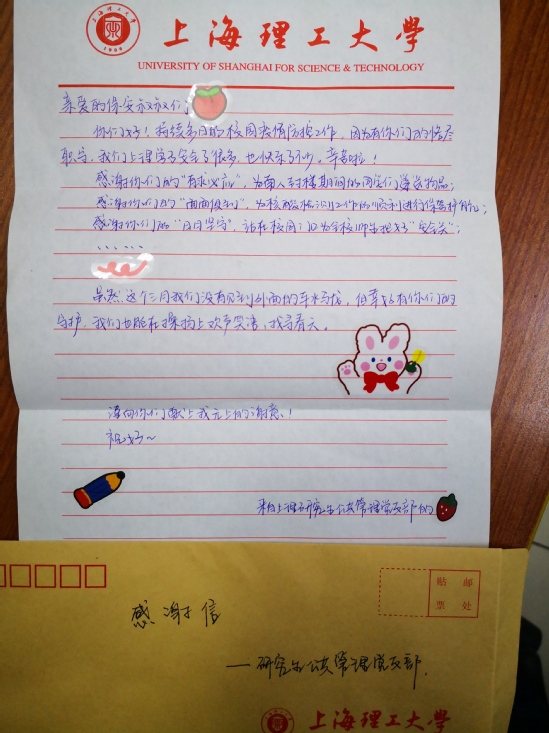 上海理工大学
UNIVERSITY OF SHANGHAI FOR SCIENCE & TECHNOLOGY
亲爱的保安叔叔们
你们好！持续多日的校园疫情防控工作，因为有你们的恪尽
职守，我们上理学子安全了很多，也快乐不少。辛苦啦！
感谢你们的“有求必应”，为封楼期间的同学们递送物品；
感谢你们的“面面俱到”，为核酸检测工作的顺利进行保驾护航；
感谢你们的“日日坚守”，站在校园门口为全校师生把好“安全关”；
……
虽然这个三月我们没有见到外面的车水马龙，但幸好有你们的
守护，我们也能在操场上欢声笑语，找寻春天。
谨向你们献上我无上的谢意！
祝好~
来自上理研究生公共管理党支部的
贴 邮
票 处
感谢信
——研究生公共管理党支部
上海理工大学